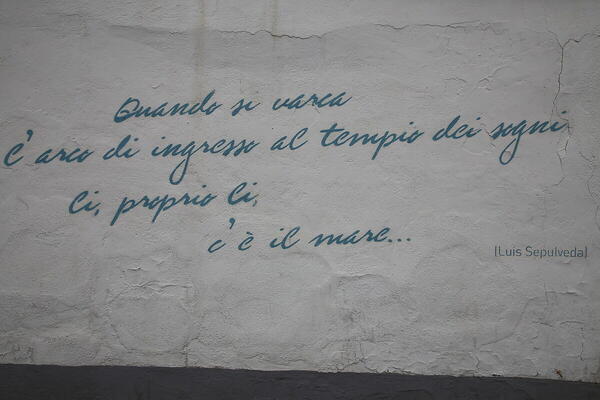 Quando si varca
l'arco di ingresso al tempio dei sogni
lì, proprio lì,
c'è il mare...
(Luis Sepulveda)